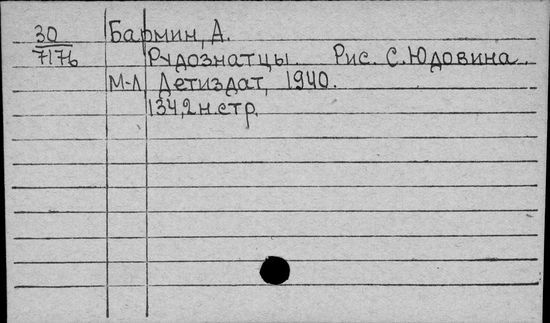 30 Бармин, А.
7176 Рудознатцы. Рис. С. Юдовина.
М-Л, Детиздат, 1940.
134,2 н.стр.